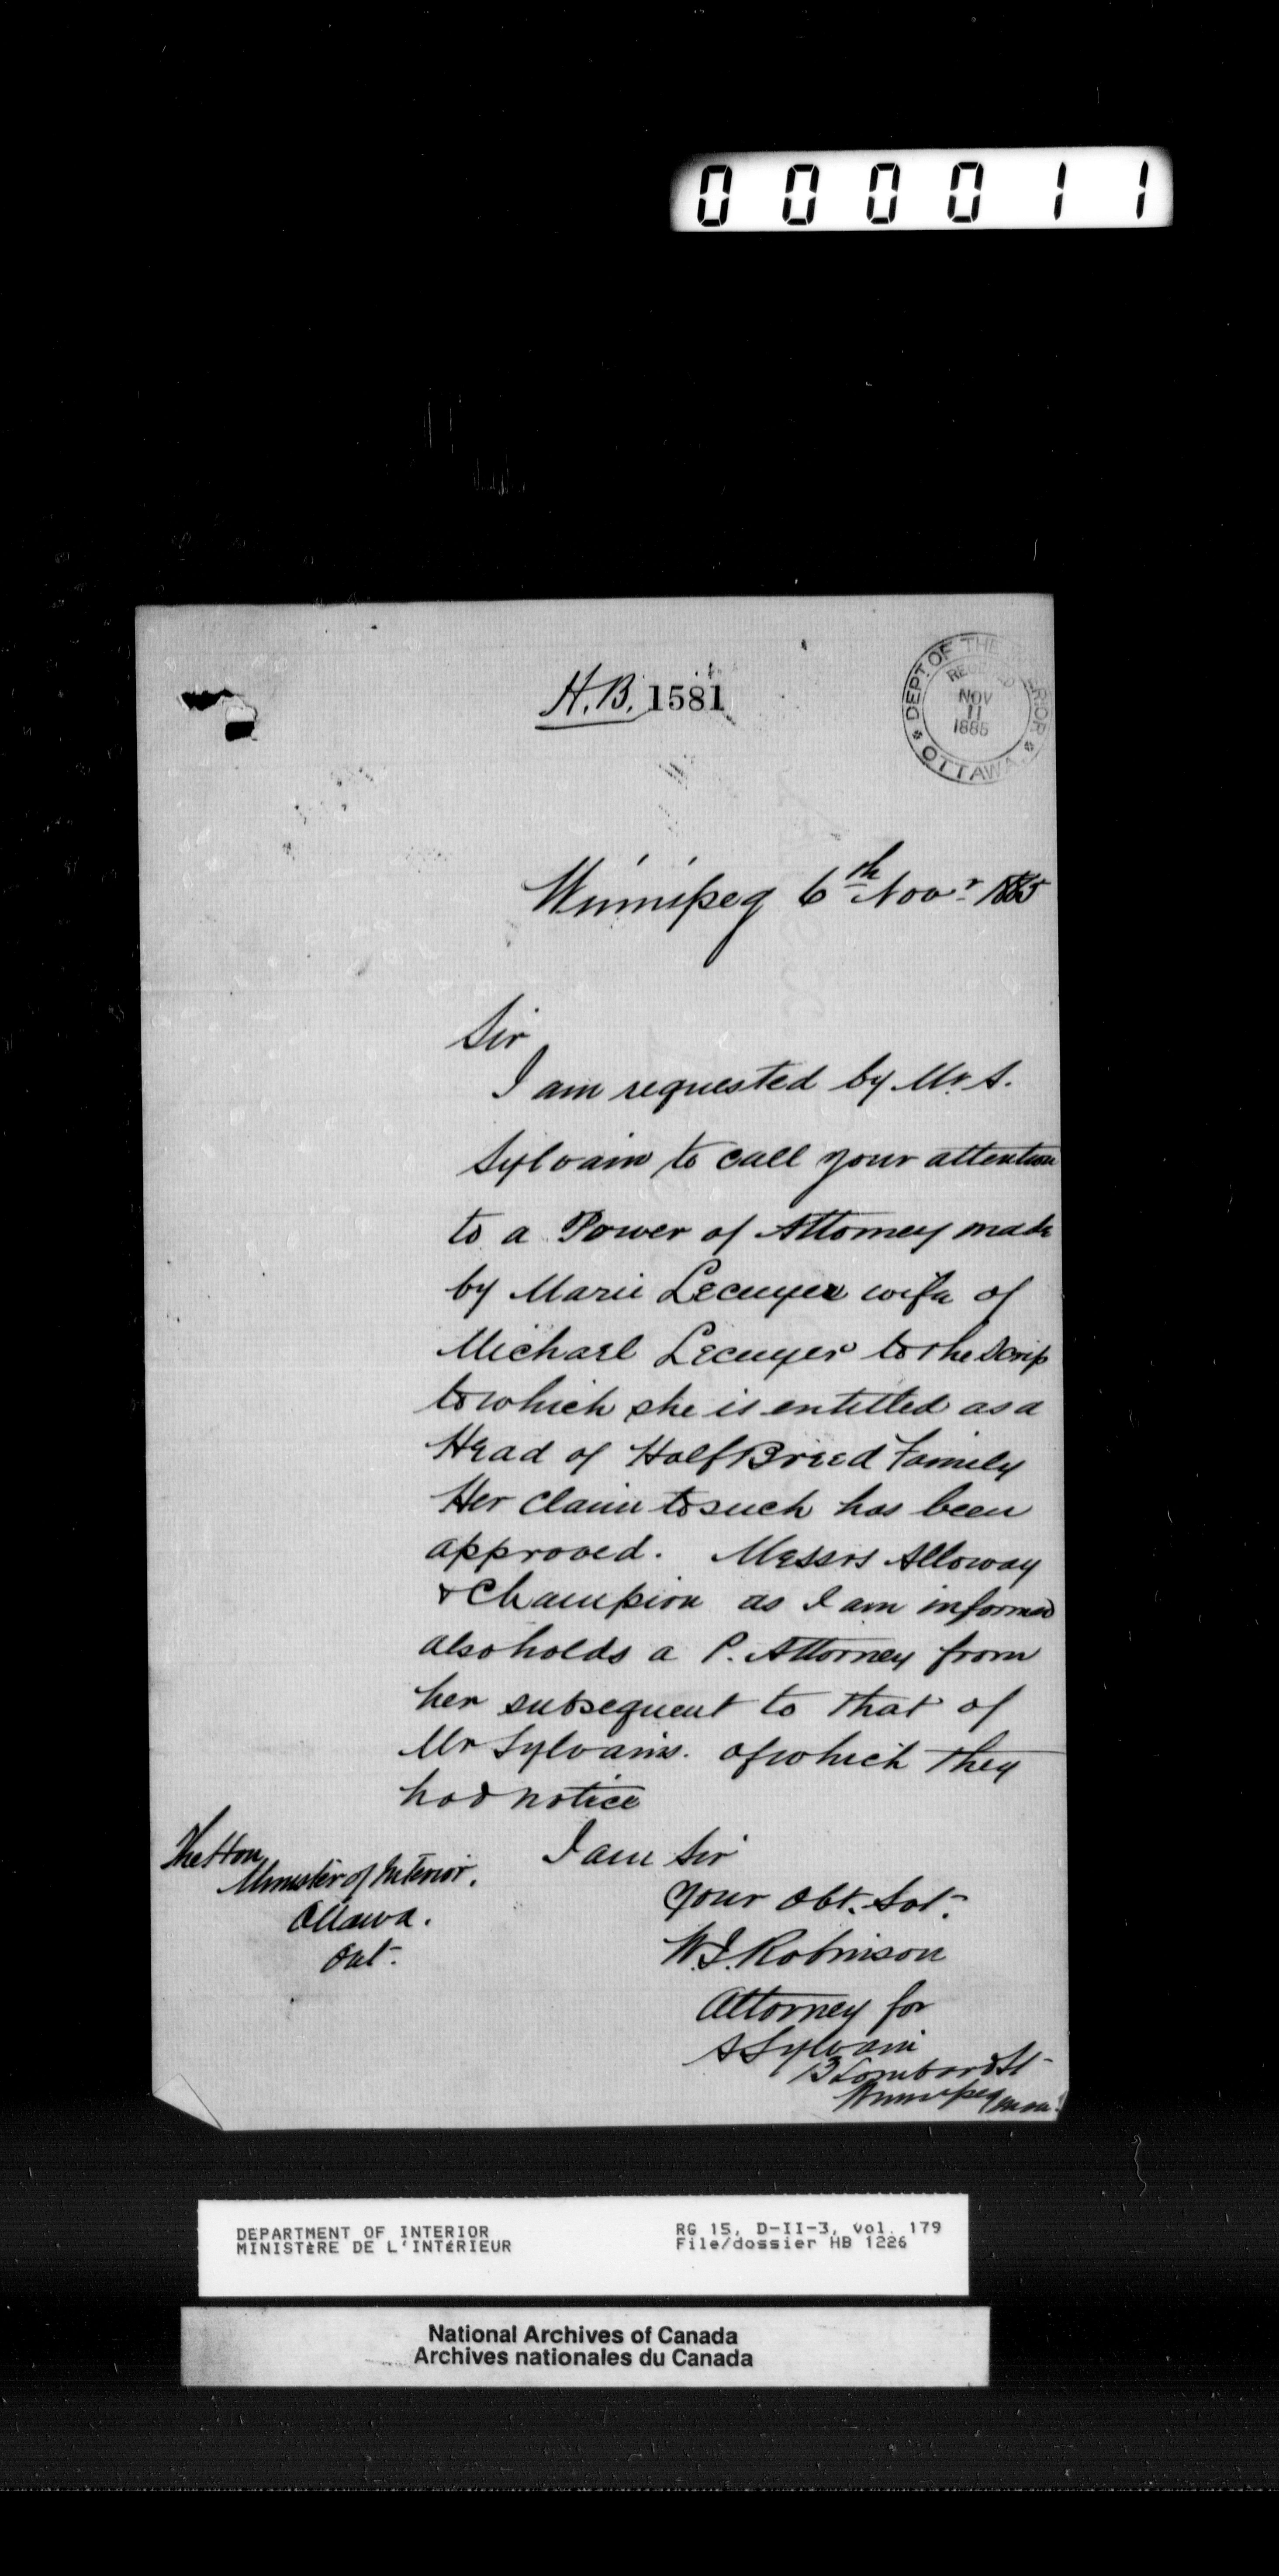 000011
H.B. 1581
DEPT. OF THE INTERIOR
RECEIVED
NOV
11
1885
OTTAWA
Winnipeg 6th Novr 1885
Sir
I am requested by Mr. S.
Sylvain to call your attention
to a Power of Attorney made
by Marie Lecuyer wife of
Michael Lecuyer to the Scrip
to which she is entitled as a
Head of Half Breed Family
Her claim to such has been
approved. Messrs Alloway
& Champion as I am informed
also holds a P. Attorney from
her subsequent to that of
Mr Sylvains. of which they
had notice
I am Sir
Your Obt. Svt.
W.J. Robinson
Attorney for
S Sylvain
3 Lombard St
Winnipeg Man.
The Hon
Minister of Interior.
Ottawa.
Ont.
DEPARTMENT OF INTERIOR
MINISTÈRE DE L'INTÉRIEUR
RG 15, D-II-3, vol. 179
File/dossier HB 1226
National Archives of Canada
Archives nationales du Canada